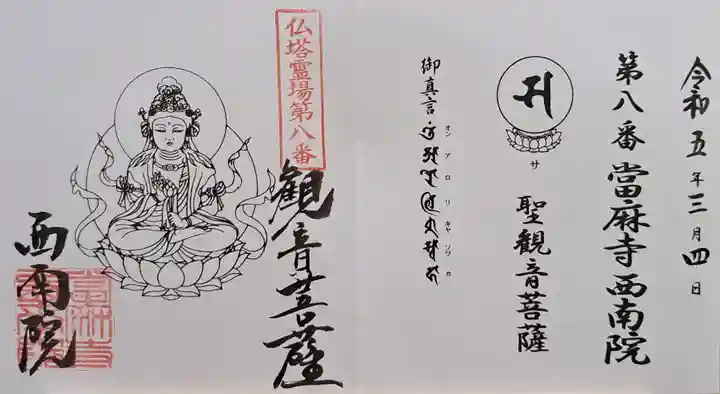 令和五年三月四日
第八番 當麻寺西南院
サ
聖観音菩薩
御真言
オン アロリキャ ソワカ
仏塔霊場第八番
観音菩薩
西南院